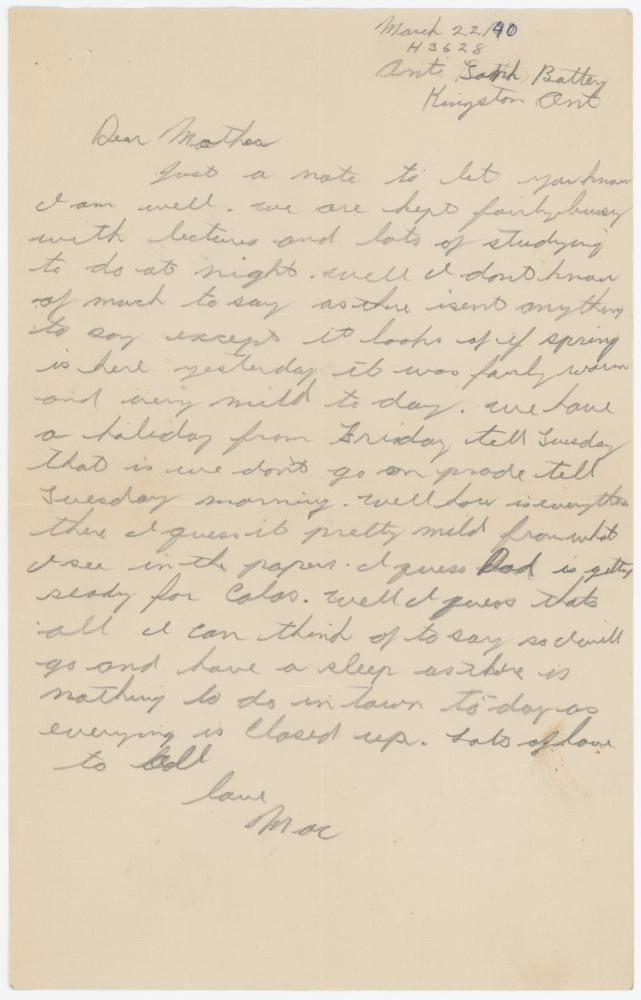 March 22/40
H3628
Anti Tank Battery
Kingston Ont
Dear Mother
Just a note to let you know
I am well. we are kept fairly busy
with lectures and lots of studying
to do at night. well I dont know
of much to say as there isent anything
to say except it looks as if spring
is here yesterday it was fairly warm
and very mild to day. we have
a holiday from Friday tell Tuesday
that is we don't go on prade tell
Tuesday morning. well how is everything
there I guess it pretty mild from what
I see in the papers. I guess Dad is getting
ready for Calos. well I guess thats
all I can think of to say so I will
go and have a sleep as there is
nothing to do in town to-day as
everying is closed up. Lots of love
to all
love
Mac